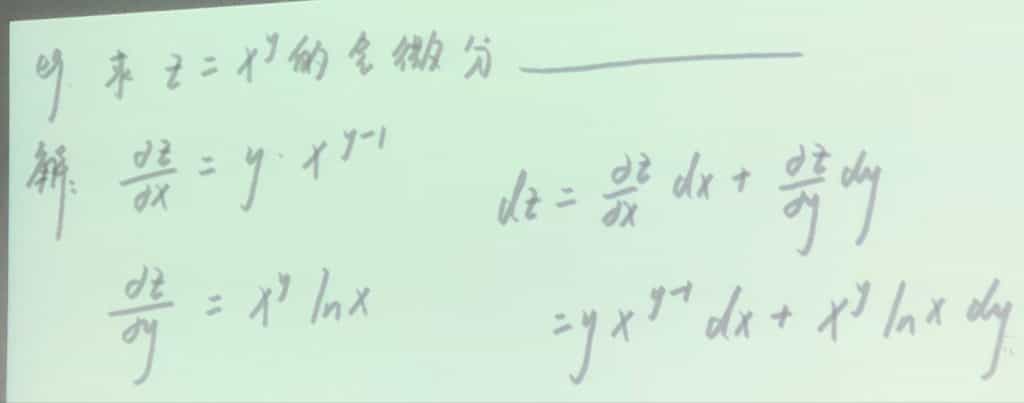 例 求 z = x^y 的全微分 ______
解: ∂z/∂x = y · x^{y-1}
∂z/∂y = x^y ln x
dz = ∂z/∂x dx + ∂z/∂y dy
= y x^{y-1} dx + x^y ln x dy